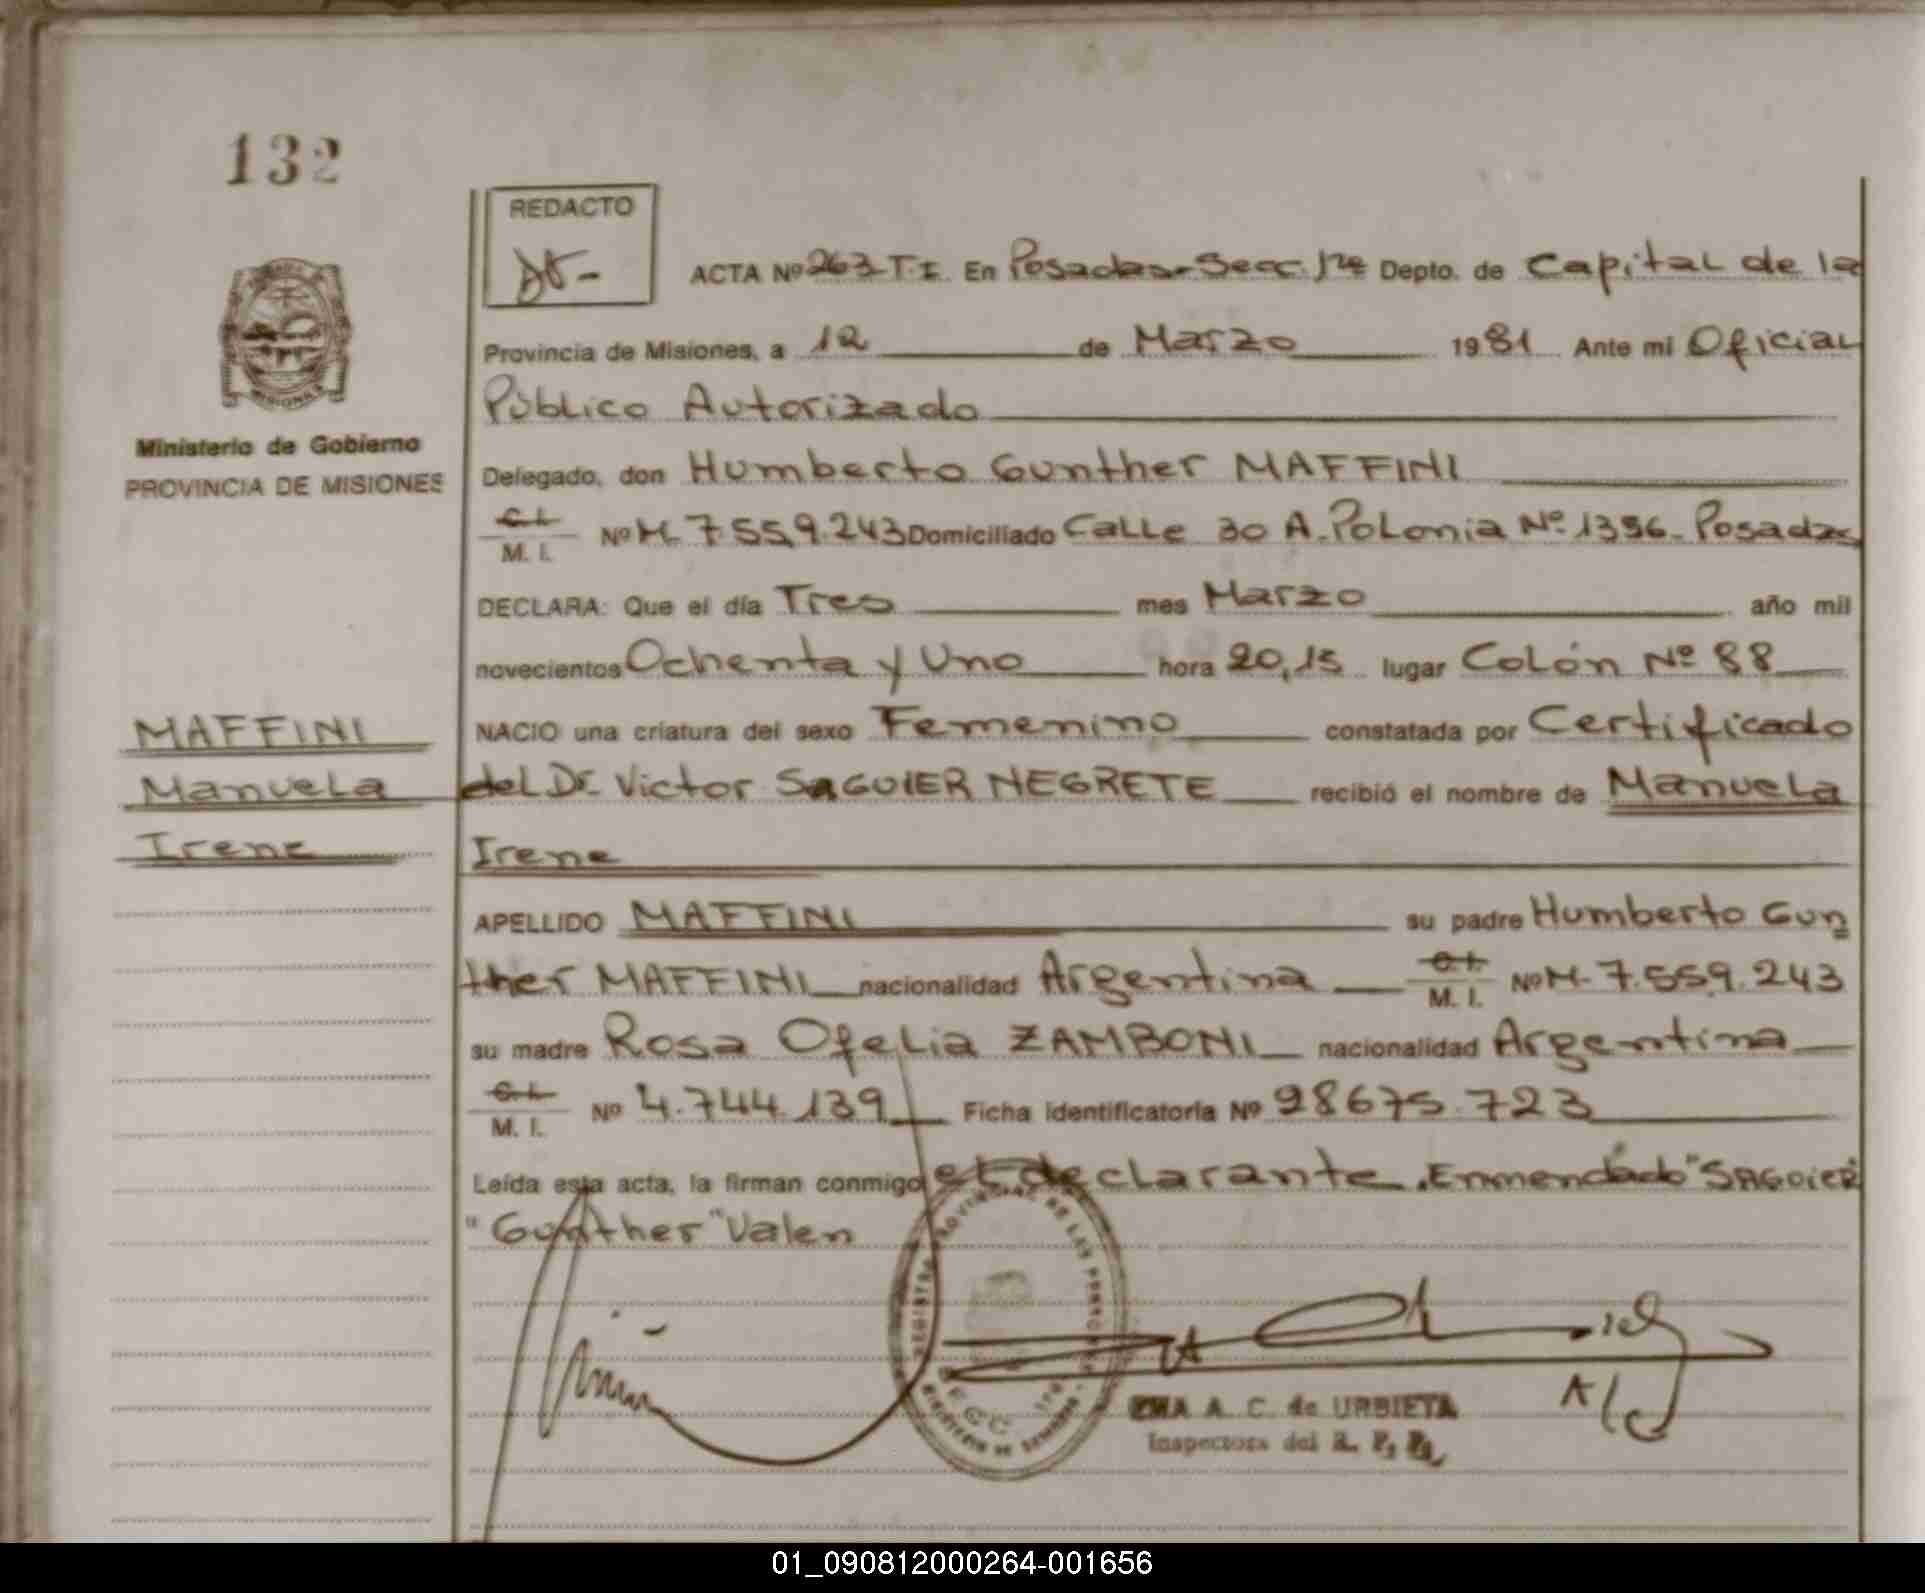 132
REDACTO
ACTA Nº 263 T.I. En Posadas-Secc. 1ra Depto. de Capital de la
Provincia de Misiones, a 12 de Marzo 1981 Ante mi Oficial
Público Autorizado
Ministerio de Gobierno
PROVINCIA DE MISIONES
Delegado, don Humberto Gunther MAFFINI
C.I.
M. I. Nº M. 7.559.243 Domiciliado Calle 30 A. Polonia Nº 1396 - Posadas
DECLARA: Que el día Tres mes Marzo año mil
novecientos Ochenta y Uno hora 20,15 lugar Colón Nº 88
MAFFINI
Manuela
Irene
NACIO una criatura del sexo Femenino constatada por Certificado
del Dr. Victor SAGUIER NEGRETE recibió el nombre de Manuela
Irene
APELLIDO MAFFINI su padre Humberto Gun
ther MAFFINI nacionalidad Argentina C.I. M. I. Nº M. 7.559.243
su madre Rosa Ofelia ZAMBONI nacionalidad Argentina
C.I.
M. I. Nº 4.744.139 Ficha identificatoria Nº 28675.723
Leída esta acta, la firman conmigo el declarante. Enmendado "SAGUIER"
"Gunther" Valen
A. C. de URBIETA
Inspectora del R. P. P.
01_090812000264-001656